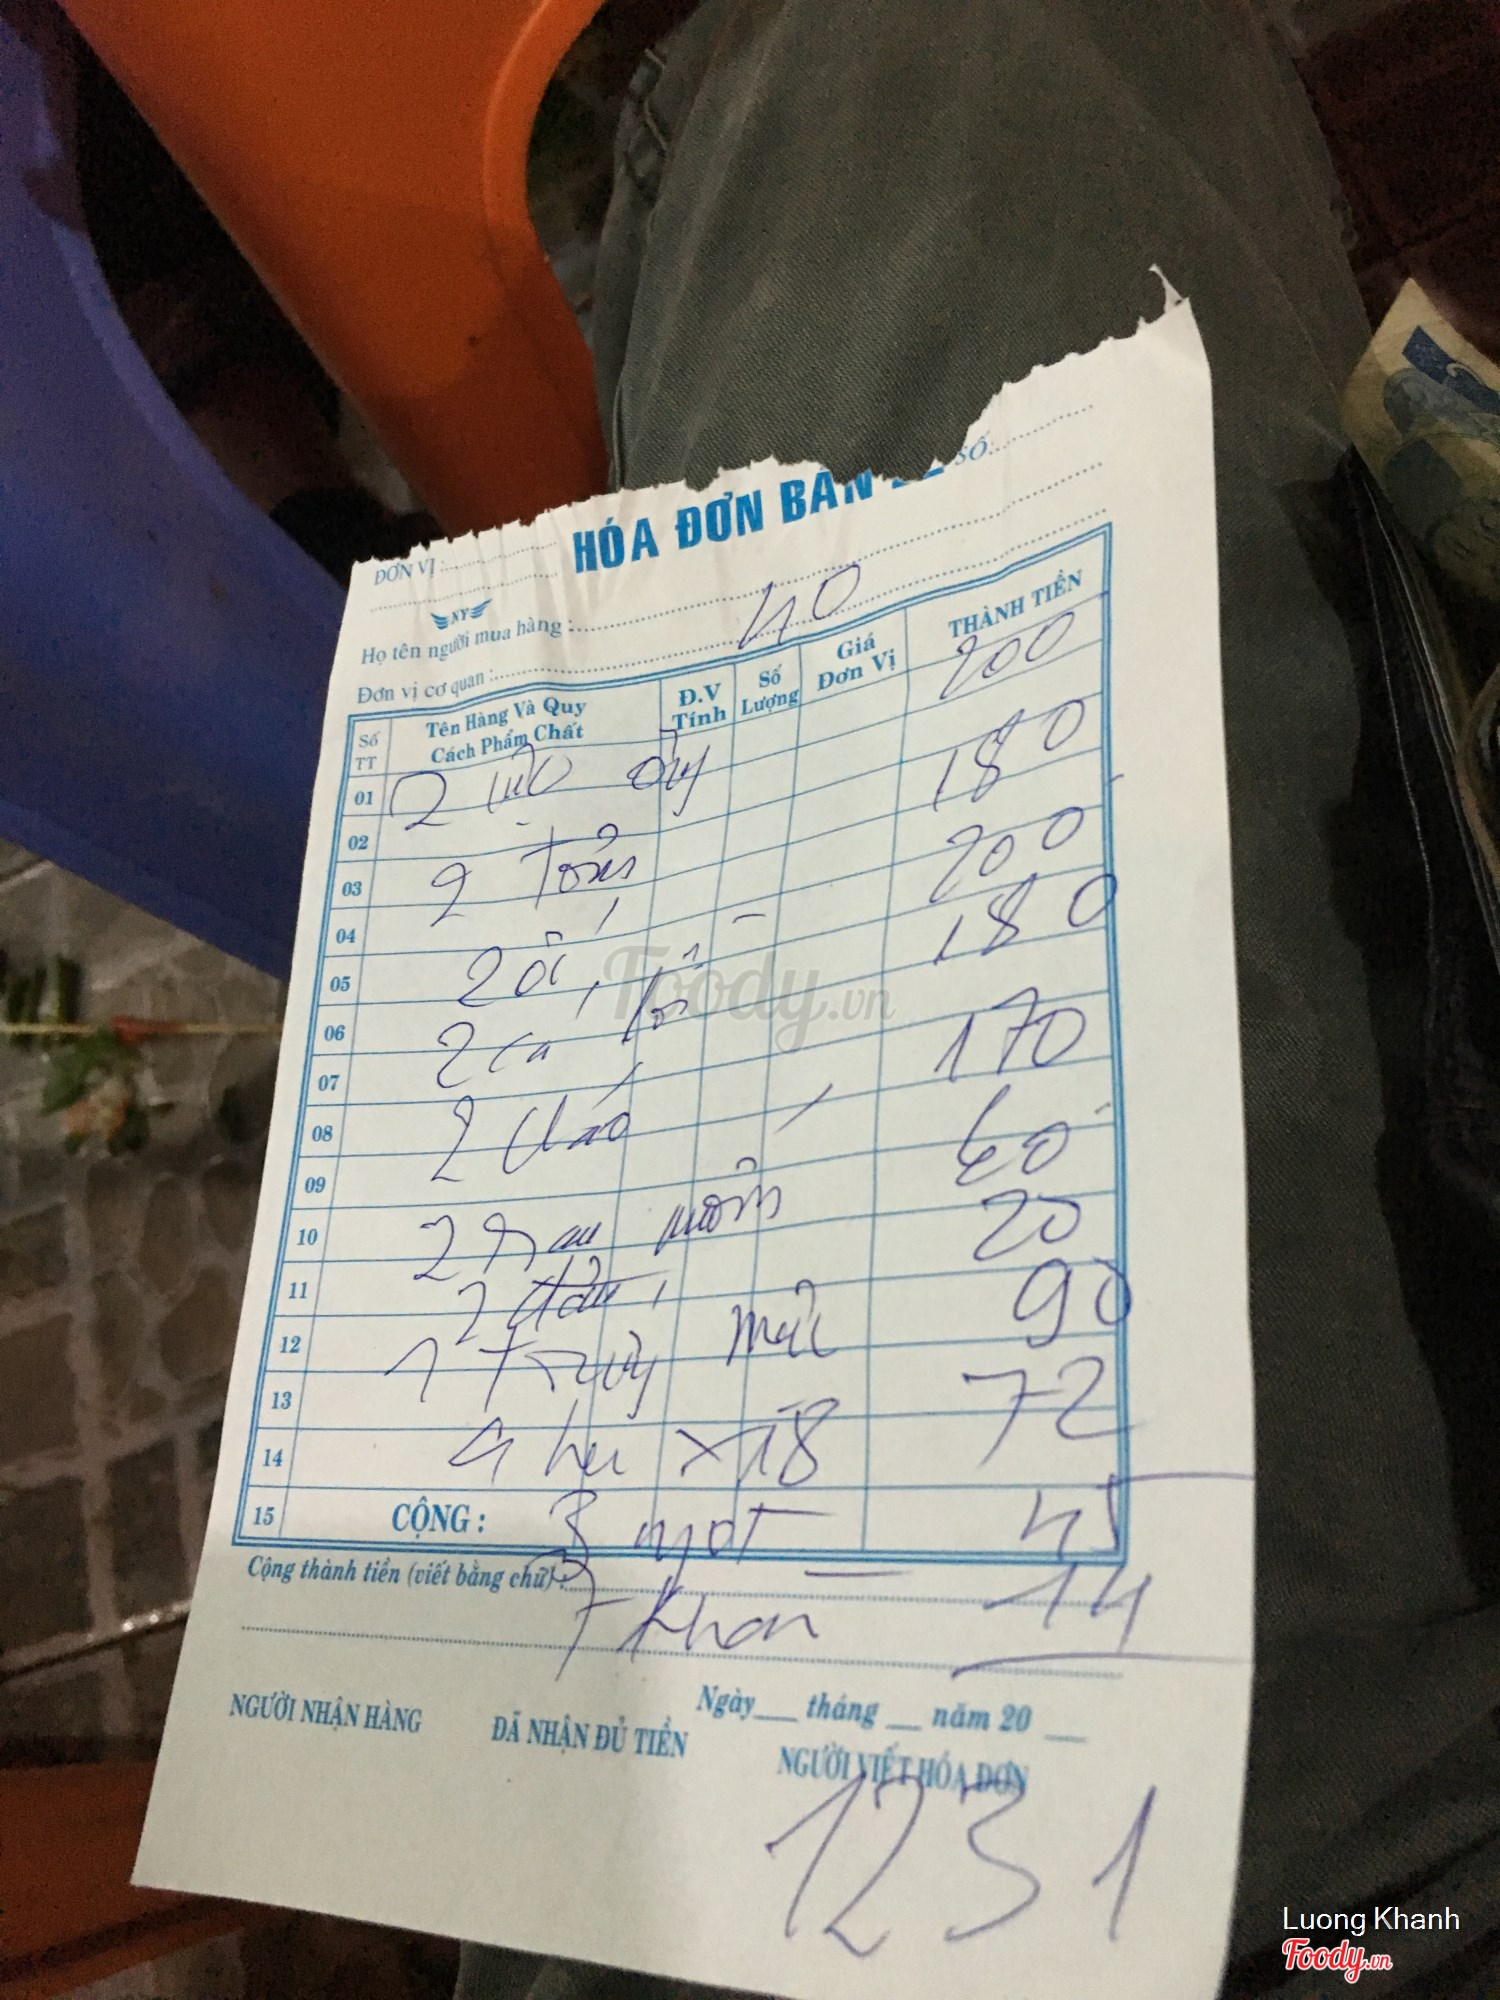 HÓA ĐƠN BÁN
SỐ
ĐƠN VỊ :
NY
Họ tên người mua hàng :
Đơn vị cơ quan :
40
Số TT Tên Hàng Và Quy Cách Phẩm Chất Đ.V Tính Số Lượng Giá Đơn Vị THÀNH TIỀN
01 2 200
02
03 2 Tôm 180
04
05 2 ốc 200
06 2 cá 180
07
08 2 cháo 170
09
10 2 Rau muống 60
11 2 đậu 20
12 1 90
13
14 4 x 18 72
15 CỘNG : 3 ngọt 45
Cộng thành tiền (viết bằng chữ) :
7 Khăn 14
Ngày tháng năm 20
NGƯỜI NHẬN HÀNG ĐÃ NHẬN ĐỦ TIỀN NGƯỜI VIẾT HÓA ĐƠN
1231
Foody.vn
Luong Khanh
Foody.vn